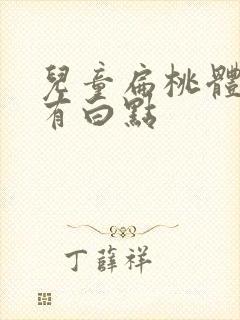 兒童扁桃體
有白點
丁薛祥